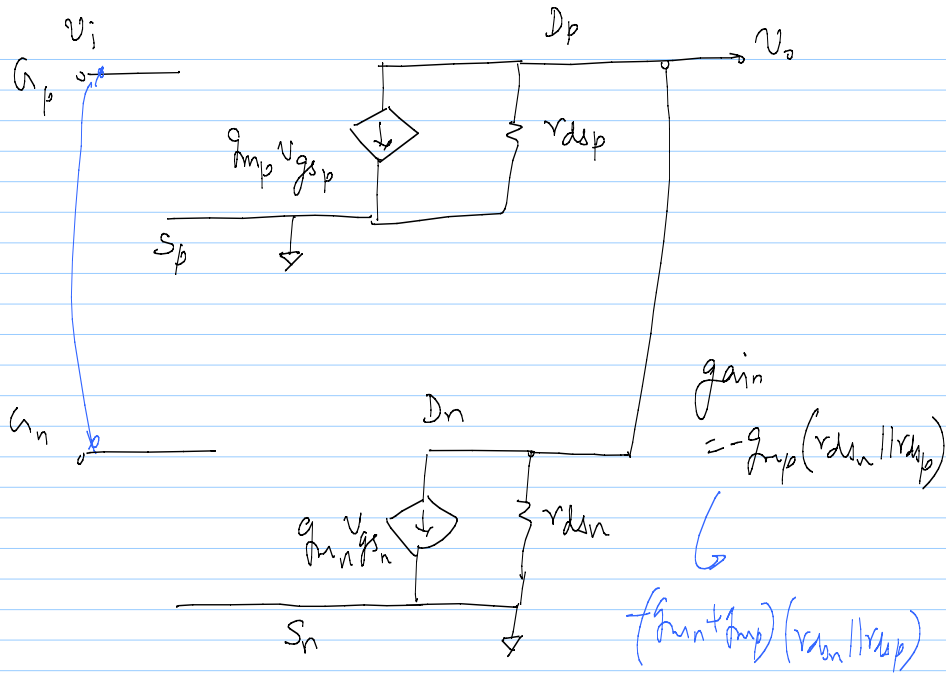 Vi
Dp
Vo
Gp
gmp vgsp
rdsp
Sp
gain
Gn
Dn
= -gmp (rdsn || rdsp)
gmn vgsn
rdsn
Sn
-(gmn + gmp) (rdsn || rdsp)